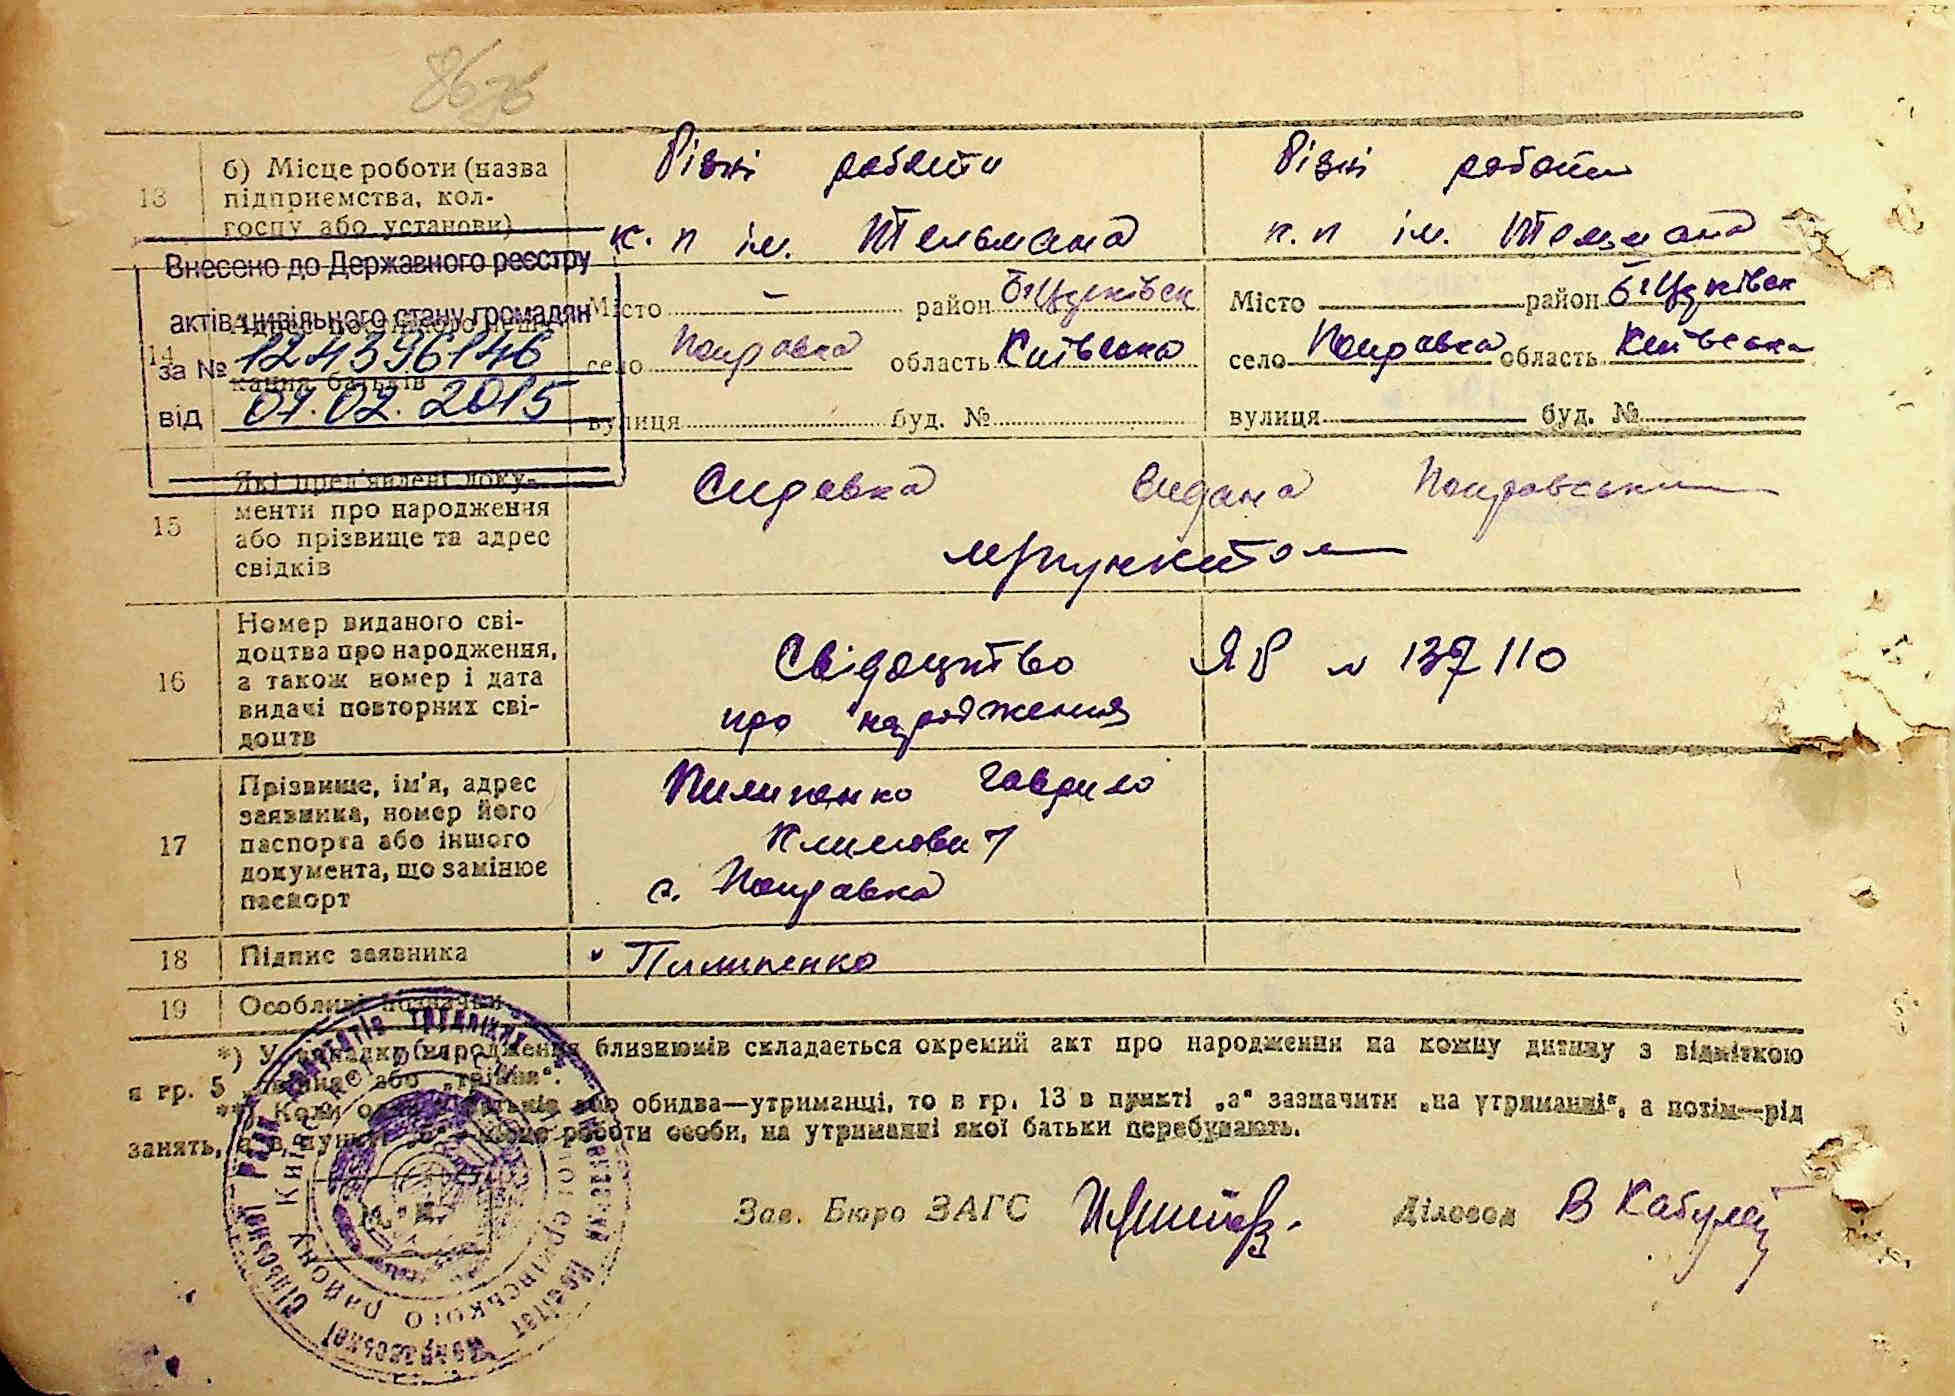 13
б) Місце роботи (назва
підприємства, кол-
госпу або установи)
Різні роботи
к. п ім. Тельмана
Різні роботи
к. п ім. Тельмана
Внесено до Державного реєстру
актів цивільного стану громадян
за № 124396146
від 07.02.2015
14
Місто – район Б-Церківськ
село Поправка область Київська
вулиця буд. №
Місто район Б-Церківськ
село Поправка область Київська
вулиця буд. №
15
Які пред'явлені доку-
менти про народження
або прізвище та адрес
свідків
Справка видана Поправським
мрпунктом
16
Номер виданого сві-
доцтва про народження,
а також номер і дата
видачі повторних сві-
доцтв
Свідоцтво ЯР № 137110
про народження
17
Прізвище, ім'я, адрес
заявника, номер його
паспорта або іншого
документа, що замінює
паспорт
Пилипенко Гаврило
Климович
с. Поправка
18
Підпис заявника
Пилипенко
19
Особливі позначки
*) У випадку народження близнюків складається окремий акт про народження на кожну дитину з відміткою
в гр. 5 „двійня“ або „трійня“.
**) Коли один з батьків або обидва—утриманці, то в гр. 13 в пункті „а“ зазначити „на утриманні“, а потім—рід
занять, а в пункті „б“—місце роботи особи, на утриманні якої батьки перебувають.
Зав. Бюро ЗАГС
Діловод В Кабулей